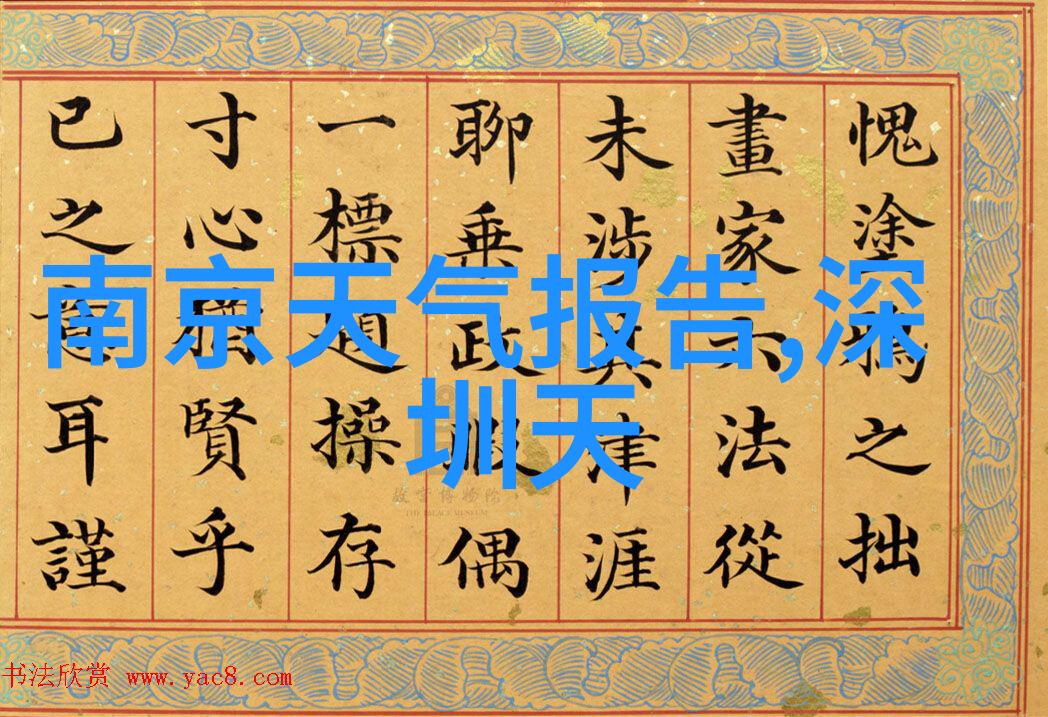 愧塗鴉之拙
畫家六法從
未涉其津涯
聊乗政暇偶
一標題操存
寸心猶賢乎
已之意耳謹
南京天气报告,深
圳天
故宫博物院
THE PALACE MUSEUM
书法欣赏 www.yac8.com